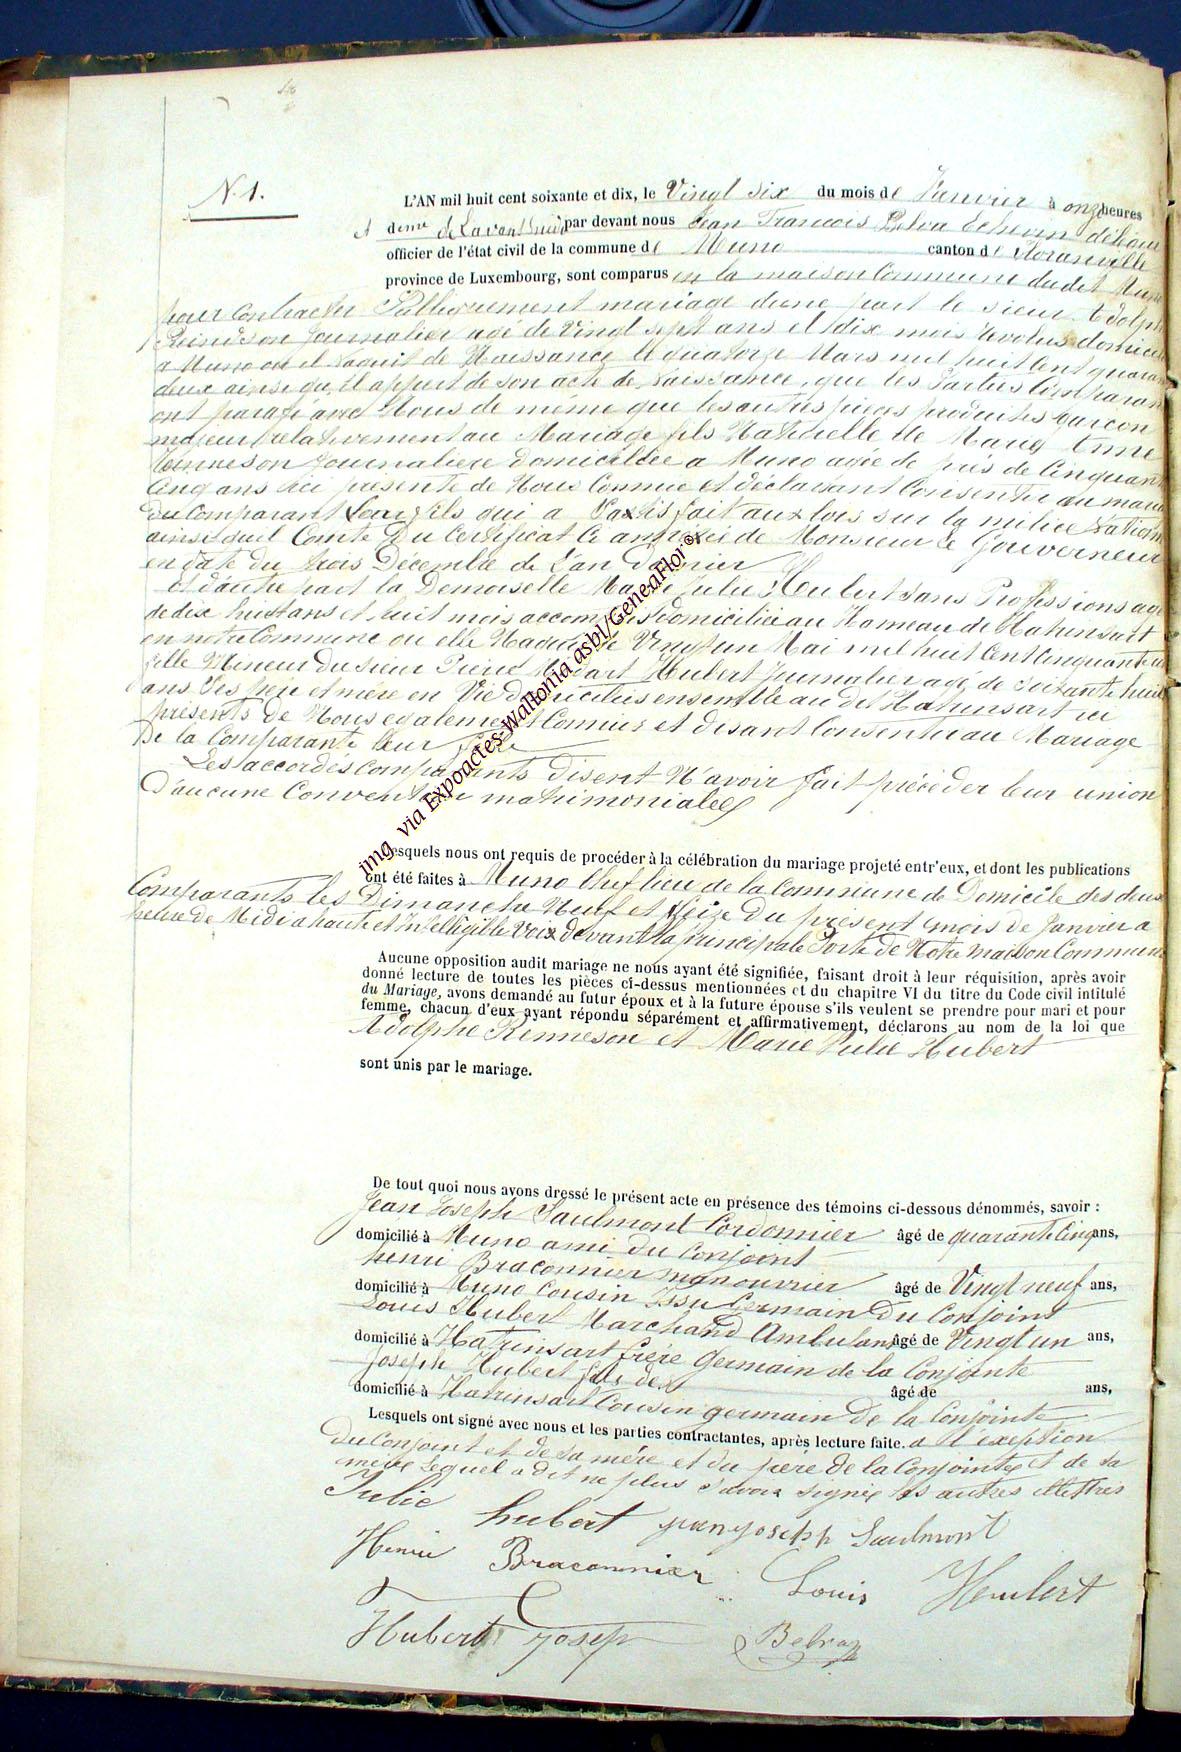 N. 1.
L'AN mil huit cent soixante et dix, le Vingt Six du mois de Janvier à onze heures
et deme de Lavant midi par devant nous Jean Francois Belva Echevin délégué
officier de l'état civil de la commune de Muno canton de Floranville
province de Luxembourg, sont comparus en la maison Commune dudit Muno
pour Contracter Publiquement mariage dune part le sieur Adolphe
Rinneson Journalier agé de Vingt Sept ans et dix mois revolus domicilié
a Muno ou il Naquit de Naissance le quatorze Mars mil huit Cent quarante
deux ainsi qu,il appert de son acte de Naissance, que les Parties Comparantes
ont parafé avec Nous de même que les autres pièces produites Garcon
majeur relativement au Mariage fils Naturelle de Marie Anne
Rinneson Journaliere domiciliée a Muno agée de près de Cinquante
Cinq ans ici presente de Nous Connue et déclarant Consentir au mariage
du Comparant Leur fils qui a Satisfait aux lois sur la milice Nationale
ainsi quil Comte Du Certificat Ci annéxée de Monsieur le Gouverneur
en date du trois Décembre de L'an Dernier
et d'autre part la Demoiselle Marie Julie Hubert sans Professions agée
de dix huit ans et huit mois accomplis domiciliée au Hameau de Hatrinsart
en notre Commune ou elle Naquit le Vingt un Mai mil huit Cent Cinquante un
fille Mineur du sieur Pierre Hubert Journalier agé de soixante huit
ans Ses père et mère en Vie domiciliés ensemble au dit Hatrinsart ici
présents de Nous egalement Connues et disant Consentir au Mariage
De la Comparante leur fille
Les accordés comparants disent N'avoir fait précéder leur union
D'aucune Convention matrimoniales
Lesquels nous ont requis de procéder à la célébration du mariage projeté entr'eux, et dont les publications
ont été faites à Muno Chef lieu de la Commune de Domicile des deux
Comparants les Dimanche Neuf et Seize Du présent mois de Janvier a
heure de Midi a haute et Intelligible Voix devant la principale Porte de Notre maison Commune
Aucune opposition audit mariage ne nous ayant été signifiée, faisant droit à leur réquisition, après avoir
donné lecture de toutes les pièces ci-dessus mentionnées et du chapitre VI du titre du Code civil intitulé
du Mariage, avons demandé au futur époux et à la future épouse s'ils veulent se prendre pour mari et pour
femme, chacun d'eux ayant répondu séparément et affirmativement, déclarons au nom de la loi que
Adolphe Rinneson et Marie Julie Hubert
sont unis par le mariage.
De tout quoi nous avons dressé le présent acte en présence des témoins ci-dessous dénommés, savoir :
Jean Joseph Saulmont Cordonnier âgé de quarante Cinq ans,
domicilié à Muno ami du Conjoint
henri Braconnier manouvrier âgé de Vingt neuf ans,
domicilié à Muno Cousin Issu Germain Du Conjoint
Louis Hubert Marchand Ambulant âgé de Vingt un ans,
domicilié à Hatrinsart frère Germain de la Conjointe
Joseph Hubert fils de âgé de ans,
domicilié à Hatrinsart Cousin germain De la Conjointe
Lesquels ont signé avec nous et les parties contractantes, après lecture faite. a l'exeption
Du Conjoint et de sa mére et du père de la Conjointe et de sa
mere Lequel a dit ne plus Savoir signé les autres illettrés
Julie hubert jean joseph Saulmont
Henri Braconnier Louis Heubert
Hubert Josep Belva
img via Expoactes-Wallonia asbl/GeneaFloi ©